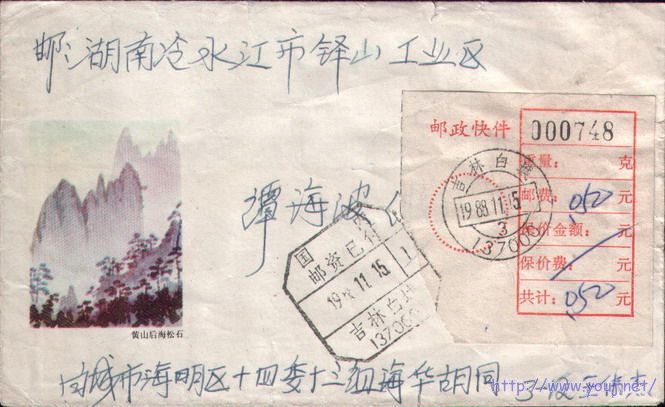 邮:湖南冷水江市铎山工业区
邮政快件
000748
重量: 克
邮费: 050 元
保价金额: 元
保价费: 元
共计: 050 元
吉林白城
1988.11.15
3
137000
潭海波
国内
邮资已付
19 11.15
1
吉林白城
137000
黄山后海松石
白城市海明区十四委十三组海华胡同
http://www.youjh.net